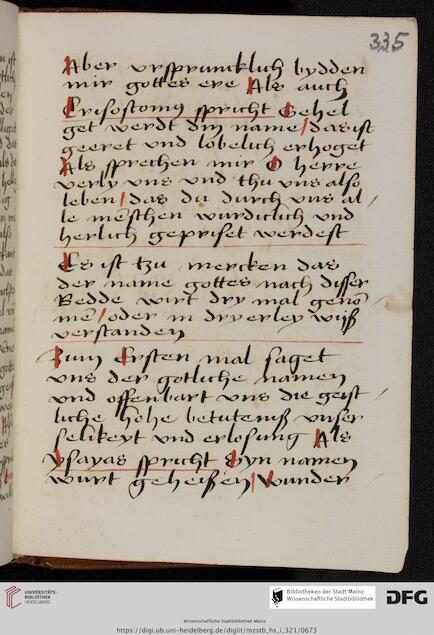 335
Aber vrspruncklich bydden
mir gottes ere Als auch
Crisostomus spricht Gehel
get werdt dyn name / das ist
geeret vnd lobelich erhoget
Als sprechen mir O herre
verly vns vnd thu vns also
leben / das du durch vns al
le menschen wurdiclich vnd
herlich gepriset werdest
Es ist tzu mercken das
der name gottes nach disser
Redde wirt dry mal genom
men / oder in dryerley wiß
verstanden
Zum Ersten mal saget
vns der gotliche namen
vnd offenbart vns die geist
liche hohe betuteniß vnser
selikeyt vnd erlosung Als
ysayas spricht Syn namen
wurt geheißen / Wunder
UNIVERSITÄTS-
BIBLIOTHEK
HEIDELBERG
Bibliotheken der Stadt Mainz
Wissenschaftliche Stadtbibliothek
DFG
Wissenschaftliche Stadtbibliothek Mainz
https://digi.ub.uni-heidelberg.de/diglit/mzstb_hs_i_321/0673